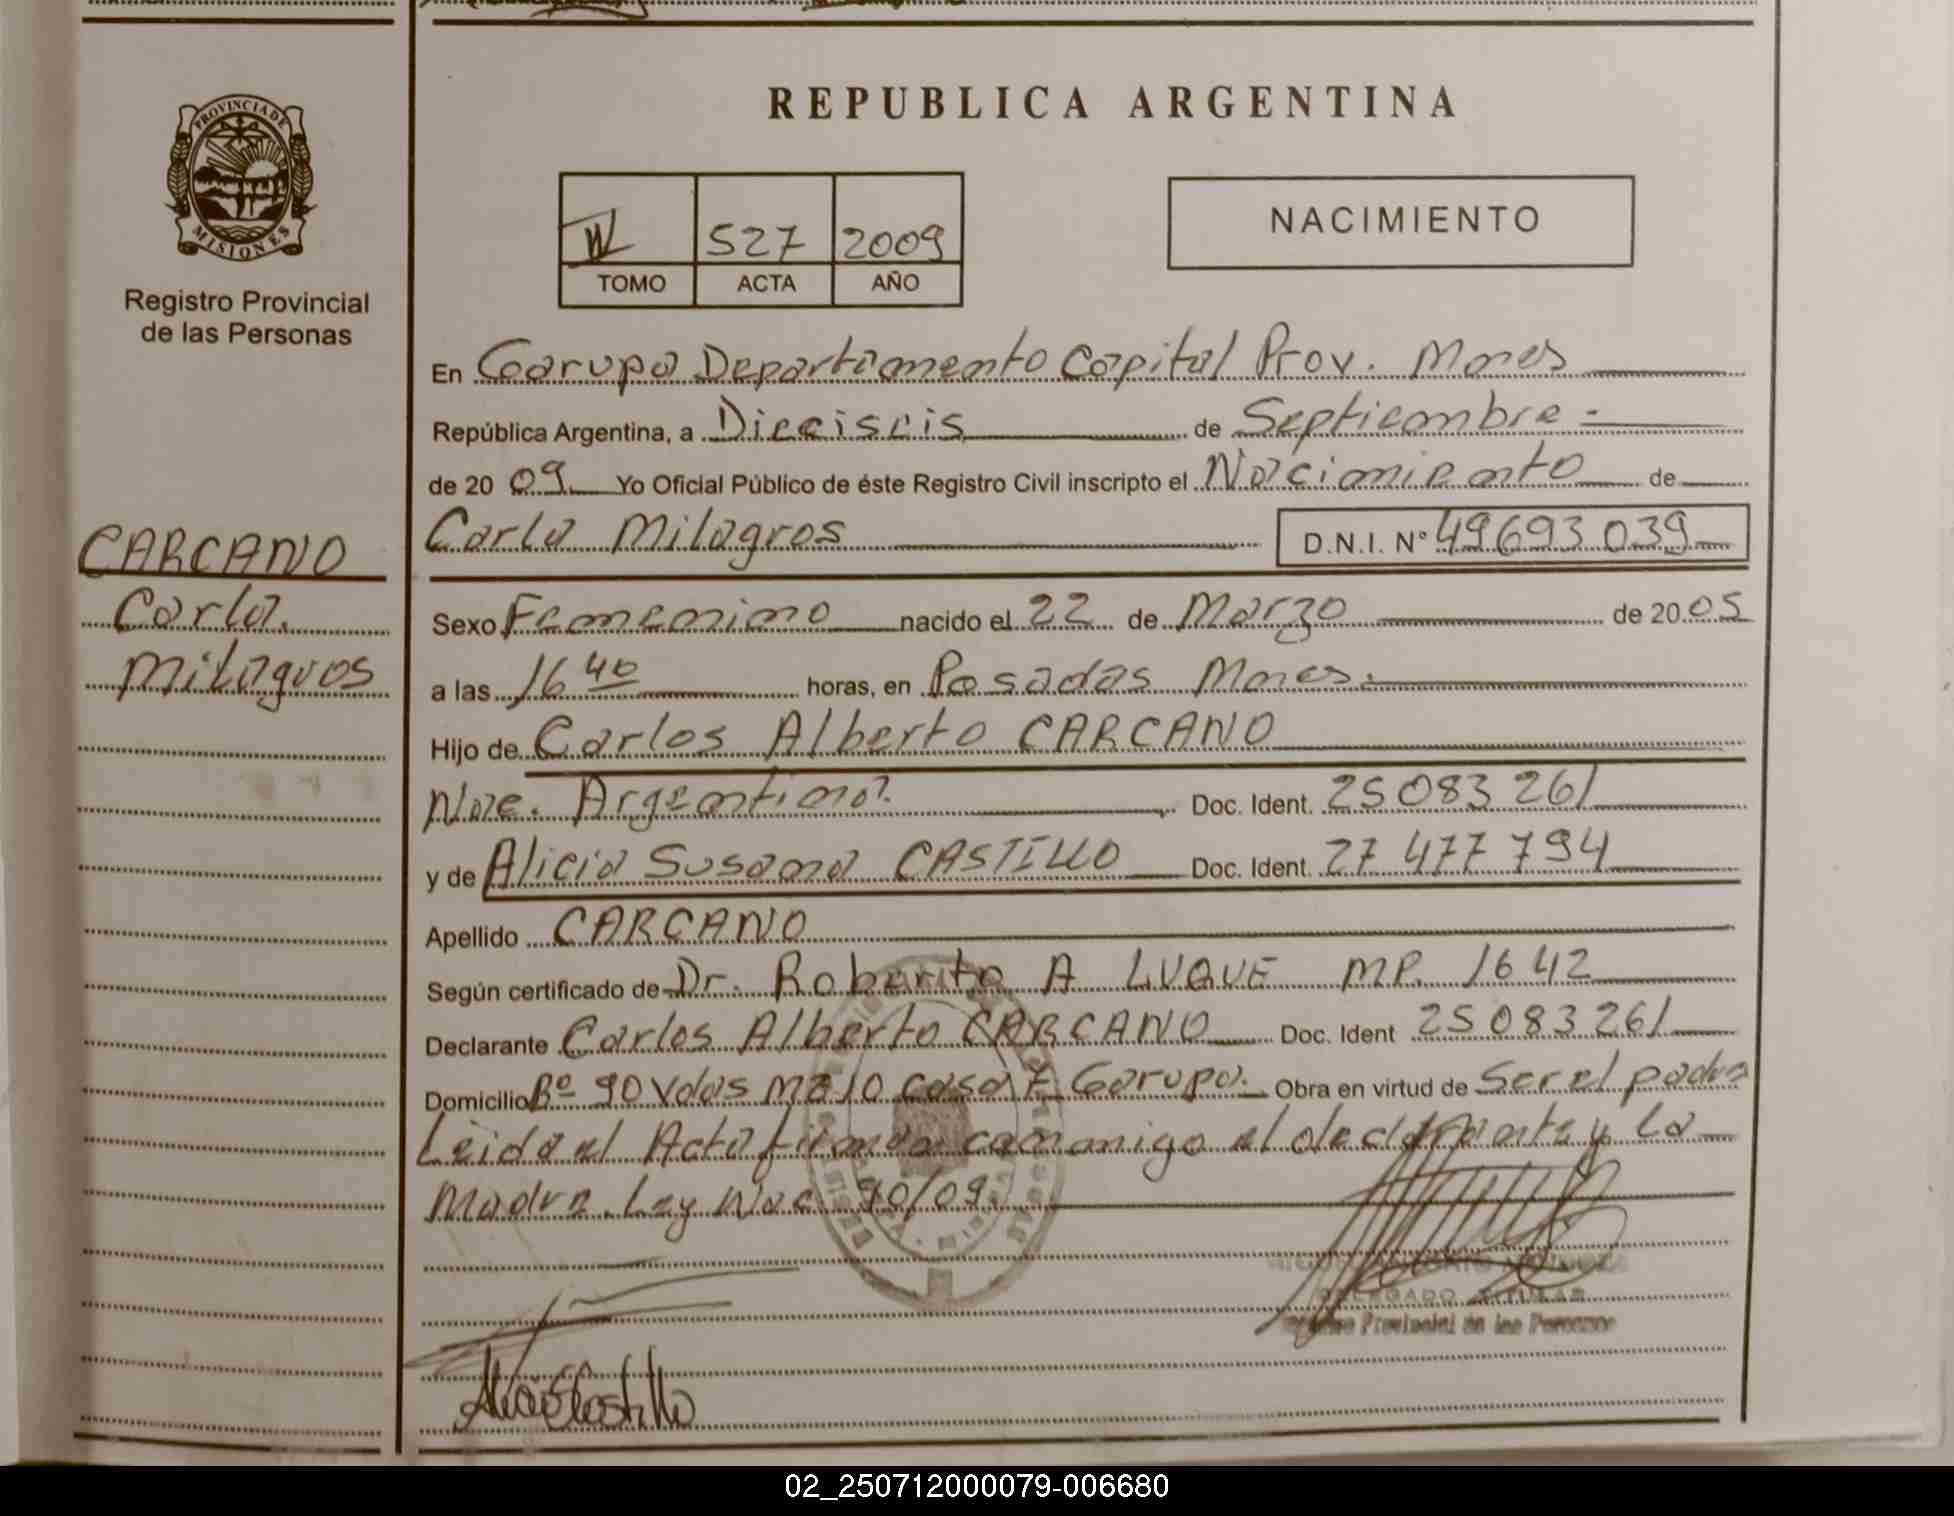 PROVINCIA DE
MISIONES
Registro Provincial
de las Personas
CARCANO
Carla
Milagros
REPUBLICA ARGENTINA
527 2009
TOMO ACTA AÑO
NACIMIENTO
En Garupa Departamento Capital Prov. Mnes
República Argentina, a Dieciseis de Septiembre
de 20 09 Yo Oficial Público de éste Registro Civil inscripto el Nacimiento de
Carla Milagros D.N.I. N° 49693039
Sexo Femenino nacido el 22 de Marzo de 20 05
a las 16 40 horas, en Posadas Mnes.
Hijo de Carlos Alberto CARCANO
Nac. Argentina. Doc. Ident. 25083261
y de Alicia Susana CASTILLO Doc. Ident. 27 477 794
Apellido CARCANO
Según certificado de Dr. Roberto A LUQUE MP. 1642
Declarante Carlos Alberto CARCANO Doc. Ident 25083261
Domicilio Bº 90 Vdas Mz 10 Casa 7 Garupa. Obra en virtud de Ser el padre
Leida el Acta firman conmigo el declarante y La
Madre. Ley Nac. 90/09
DELEGADO TITULAR
Provincial de las Personas
Alicia Castillo
02_250712000079-006680